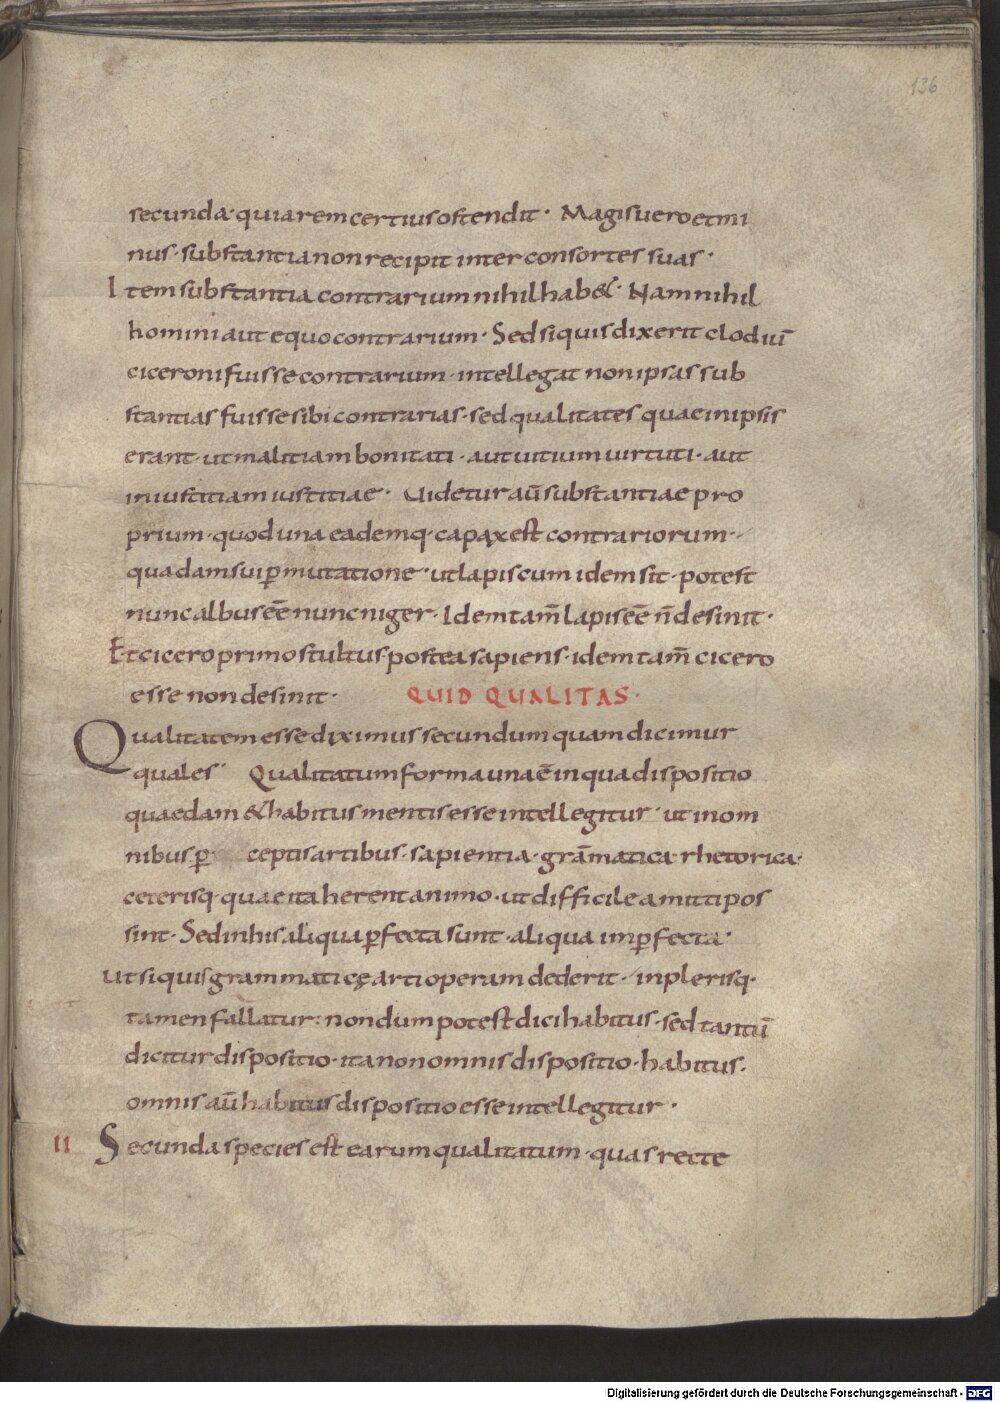 136
secunda· quia rem certius ostendit· Magis uero et mi
nus· substantia non recipit inter consortes suas·
Item substantia contrarium nihil hab&· Nam nihil
homini aut equo contrarium· Sed si quis dixerit clodiū
ciceroni fuisse contrarium· intellegat non ipsas sub
stantias fuisse sibi contrarias· sed qualitates quae in ipsis
erant· ut malitiam bonitati· aut uitium uirtuti· aut
iniustitiam iustitiae· Uidetur aū substantiae pro
prium· quod una eademq· capax est contrariorum·
quadam sui ꝑmutatione· ut lapis cum idem sit· potest
nunc albus eē nunc niger· Idem tam̄ lapis eē n̄ desinit·
Et cicero primo stultus postea sapiens· idem tam̄ cicero
esse non desinit· QUID QUALITAS·
Qualitatem esse diximus secundum quam dicimur
quales Qualitatum forma una ē in qua dispositio
quaedam & habitus mentis esse intellegitur· ut in om
nibus ꝑ ceptis artibus· sapientia· grāmatica rhetorica·
ceterisq· quae ita herent animo· ut difficile amitti pos
sint· Sed in his aliqua ꝑfecta sunt· aliqua imꝑfecta·
ut si quis grammaticę arti operam dederit· in plerisq·
tamen fallatur: nondum potest dici habitus· sed tantū
dicitur dispositio· ita non omnis dispositio· habitus·
omnis aū habitus dispositio esse intellegitur·
II Secunda species est earum qualitatum· quas recte
Digitalisierung gefördert durch die Deutsche Forschungsgemeinschaft - DFG